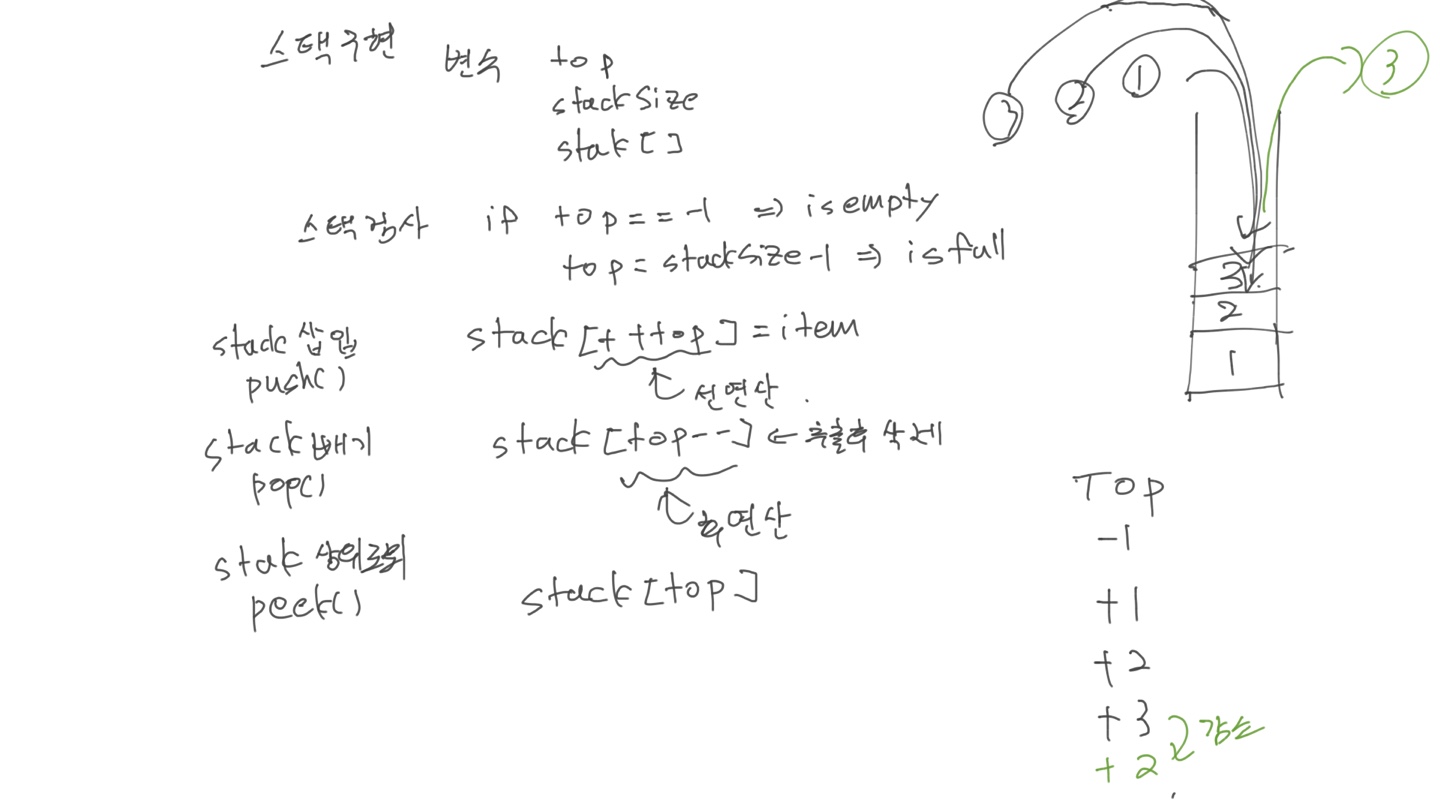 스택구현 변수 top
stackSize
stak[]
스택검사 if top==-1 => isempty
top=stackSize-1 => isfull
stack 삽입 stack[++top]=item
push() 선연산.
stack 빼기 stack[top--] ← 추출후 삭제
pop() 후연산
stak peek() stack[top]
③ ② ① ③
3
2
1
TOP
-1
+1
+2
+3 감소
+2